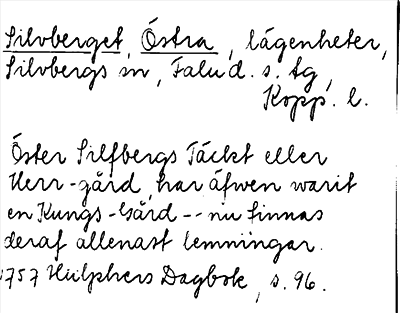 Silvberget, Östra, lägenheter,
Silvbergs sn, Falu d. s. tg,
Kopp. l.
Öster Silfbergs Täckt eller
Herr-gård, har äfwen warit
en Kungs-Gård -- nu finnas
deraf allenast lemningar.
1757 Hülphers Dagbok, s. 96.